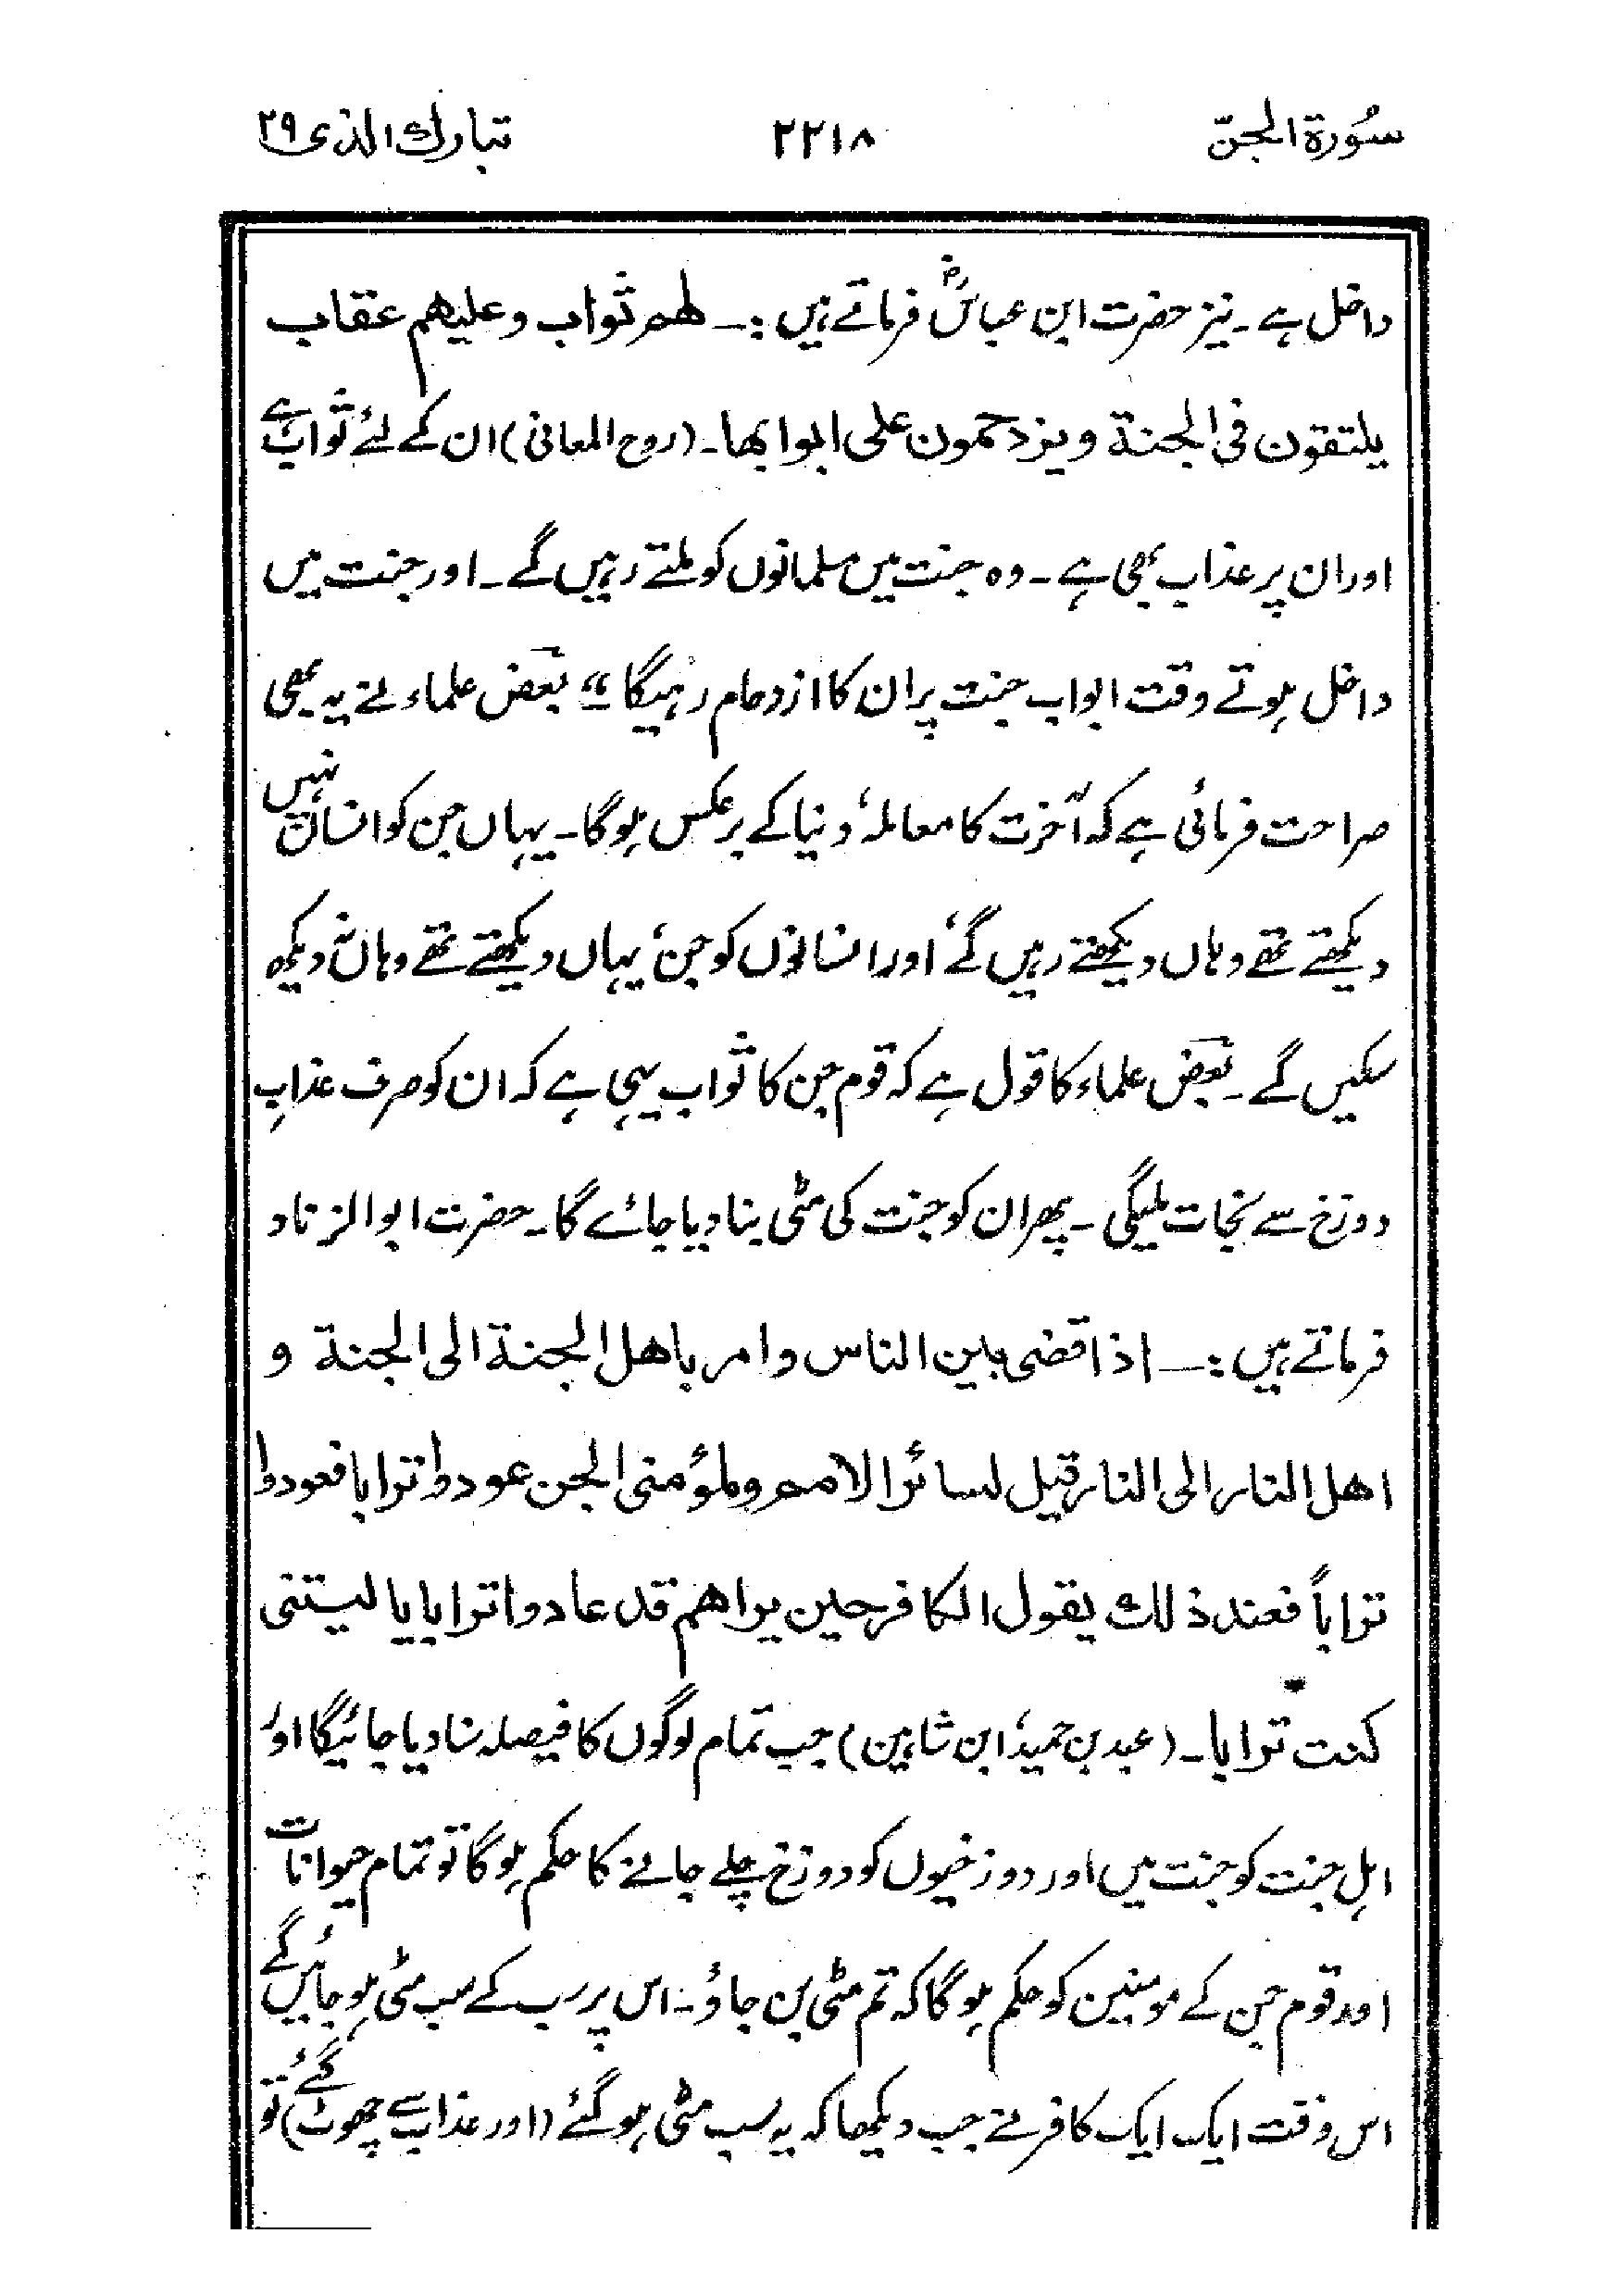 سُورة الجنّ ۲۲۱۸ تبارك الذی ۲۹
داخل ہے۔ نیز حضرت ابن عباسؓ فرماتے ہیں :۔ لهم ثواب وعليهم عقاب
يلتقون فی الجنة ويزدحمون على ابوابها۔ (روح المعانی) ان کے لئے ثواب ہے
اور ان پر عذاب بھی ہے۔ وہ جنت میں مسلمانوں کو ملتے رہیں گے۔ اور جنت میں
داخل ہوتے وقت ابواب جنت پر ان کا ازدحام رہیگا“ بعض علماء نے یہ بھی
صراحت فرمائی ہے کہ آخرت کا معاملہ‘ دنیا کے برعکس ہوگا۔ یہاں جن کو انسان نہیں
دیکھتے تھے وہاں دیکھتے رہیں گے‘ اور انسانوں کو جن‘ یہاں دیکھتے تھے وہاں نہ دیکھ
سکیں گے۔ بعض علماء کا قول ہے کہ قوم جن کا ثواب یہی ہے کہ ان کو صرف عذابِ
دوزخ سے نجات ملیگی۔ پھر ان کو جنت کی مٹی بنا دیا جائے گا۔ حضرت ابوالزناد
فرماتے ہیں :۔ اذا قضى بين الناس وامر باهل الجنة الى الجنة و
اهل النار الى النار قيل لسائر الامم ولمؤمنى الجن عودوا ترابا فعودوا
تراباً فعند ذلك يقول الكافر حين يراهم قد عادوا ترابا يا ليتنى
كنت ترابا۔ (عبد بن حمید‘ ابن شاہین) جب تمام لوگوں کا فیصلہ سنا دیا جائیگا اور
اہلِ جنت کو جنت میں اور دوزخیوں کو دوزخ چلے جانے کا حکم ہوگا تو تمام حیوانات
اور قوم جن کے مومنین کو حکم ہوگا کہ تم مٹی بن جاؤ۔ اس پر سب کے سب مٹی ہو جائیں گے
اس وقت ایک ایک کافر نے جب دیکھا کہ یہ سب مٹی ہوگئے (اور عذاب سے چھوٹ گئے) تو